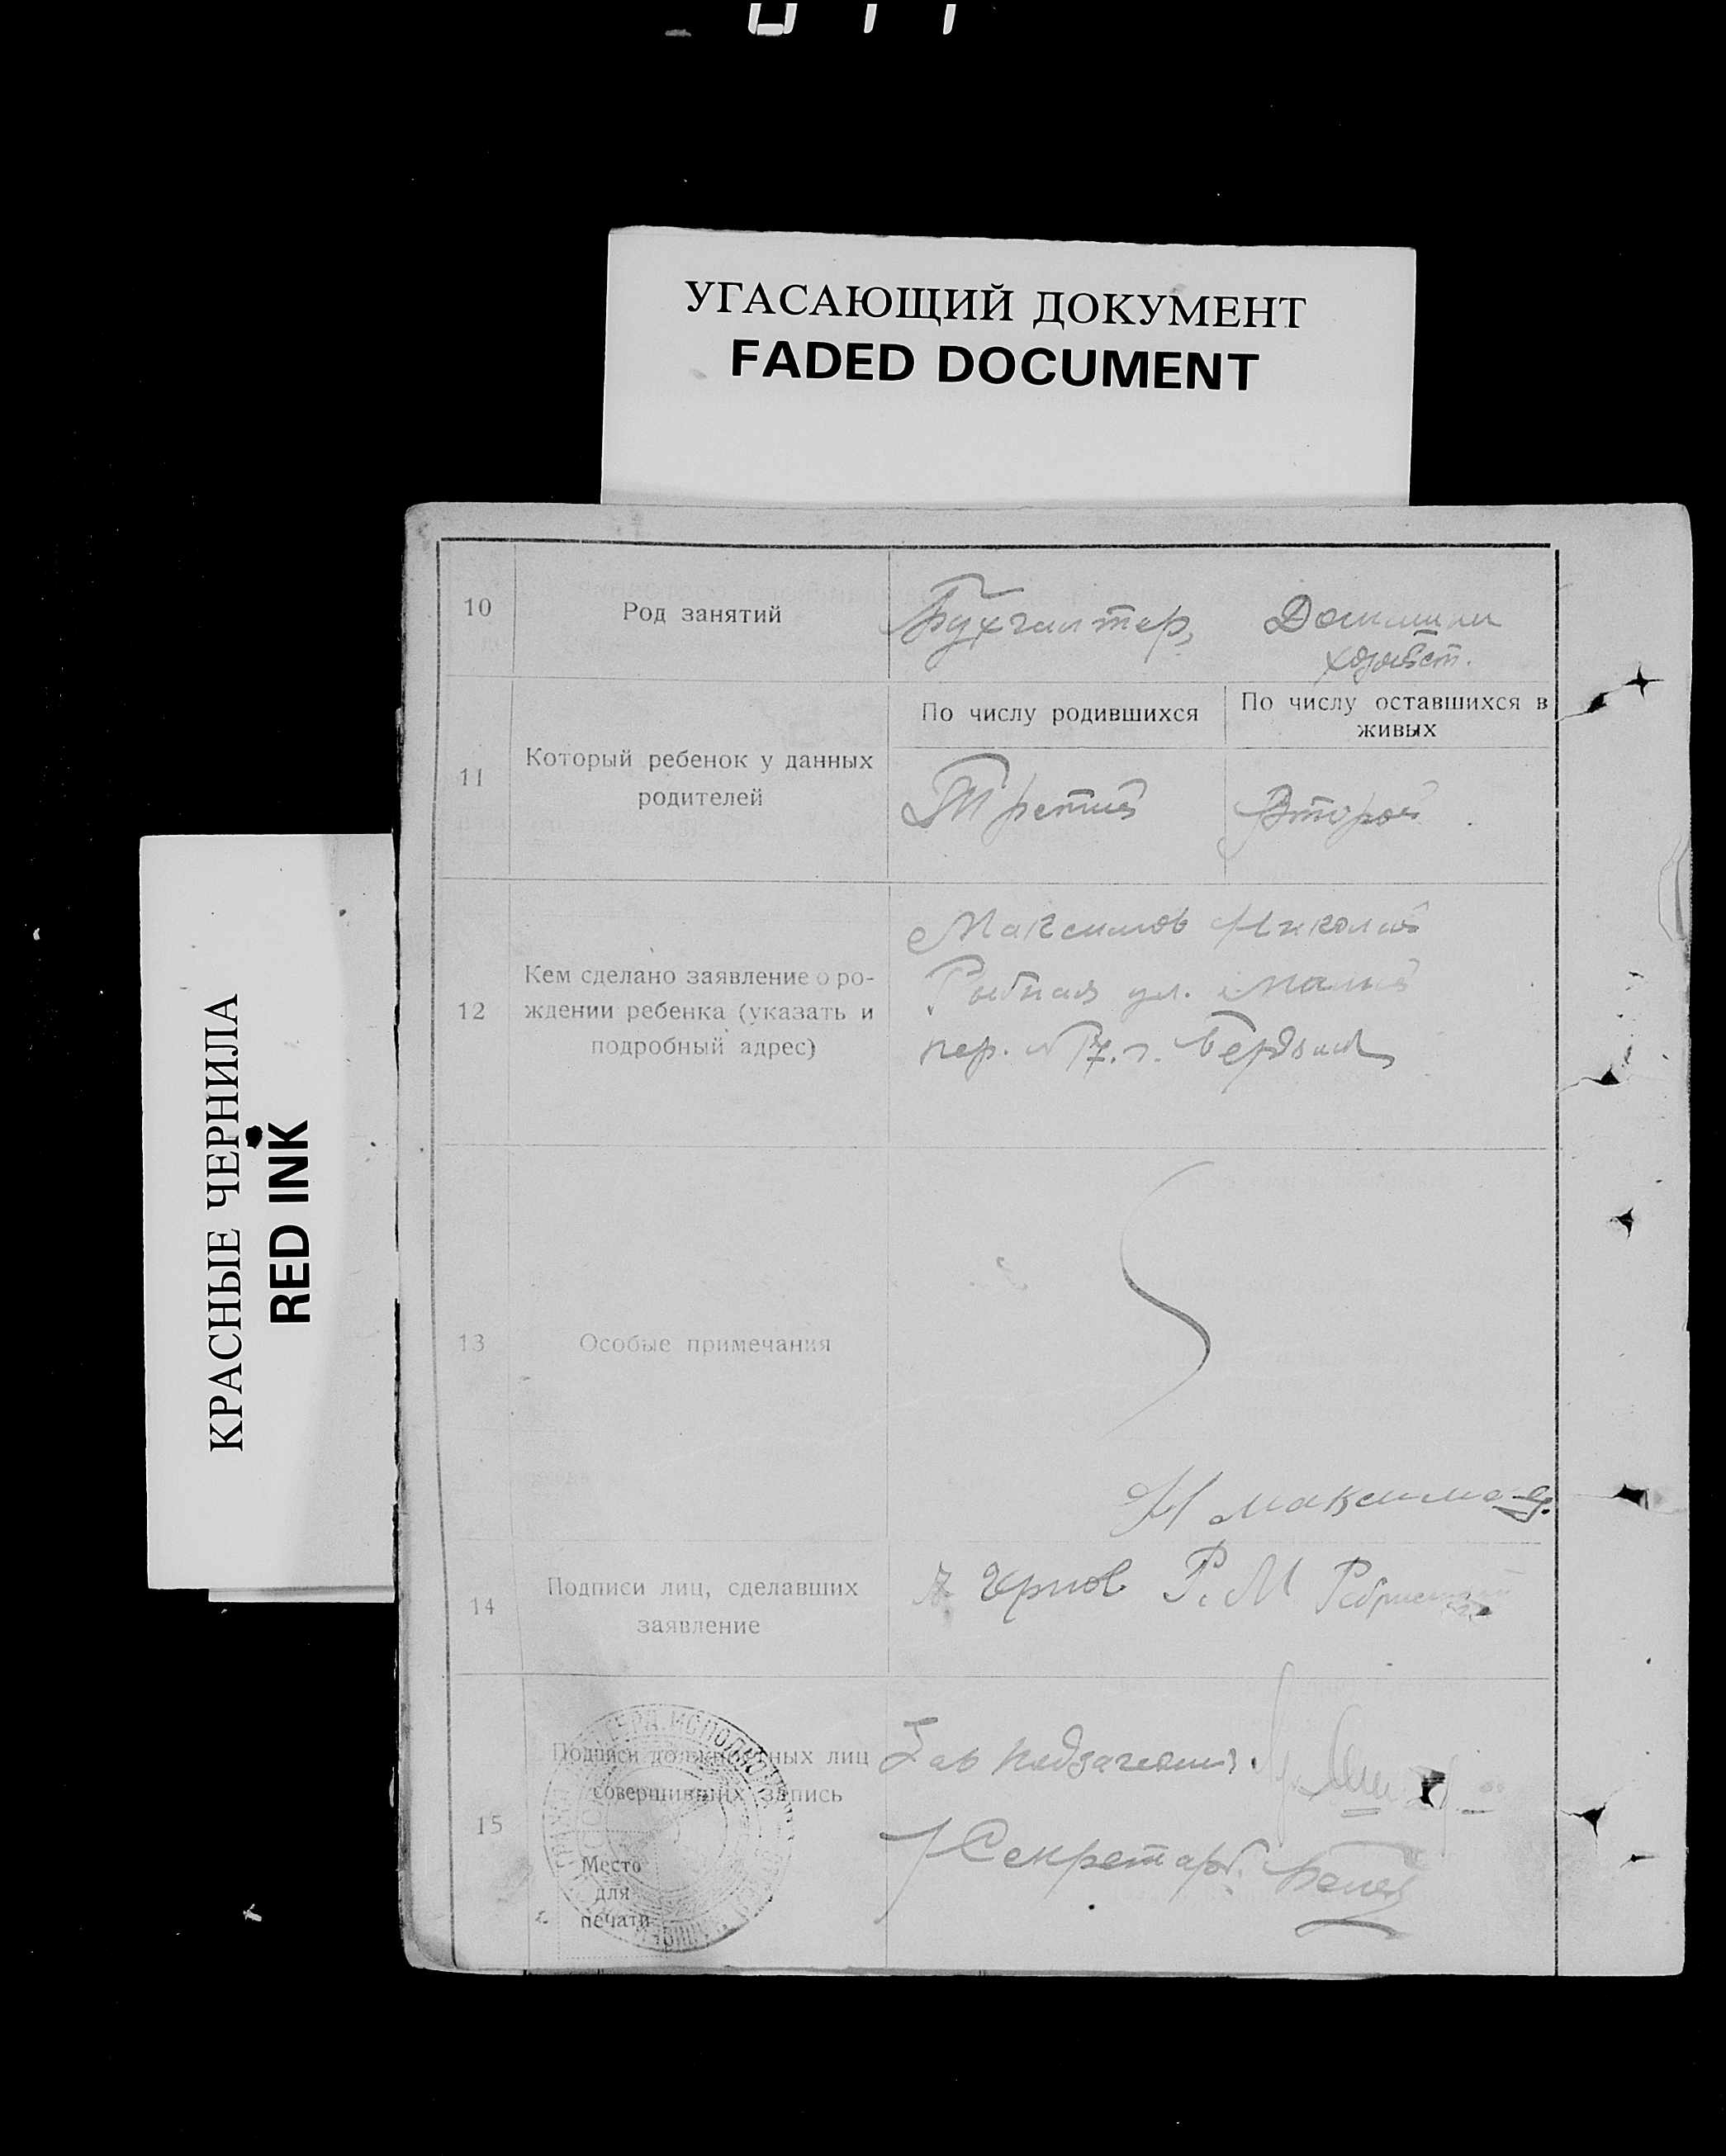 УГАСАЮЩИЙ ДОКУМЕНТ
FADED DOCUMENT
КРАСНЫЕ ЧЕРНИЛА
RED INK
10 Род занятий Бухгалтер, Домашн
хозяйст.
11 Который ребенок у данных родителей
По числу родившихся По числу оставшихся в живых
Третий Второй
12 Кем сделано заявление о ро-
ждении ребенка (указать и
подробный адрес)
Максимов Николай
Рыбная ул. Малый
пер. № 7. г. Бердянск
13 Особые примечания
Н Максимов
14 Подписи лиц, сделавших
заявление
Чернов Р. М
15 Подписи должностных лиц
совершивших запись
Место
для
печати
Зав
Секретарь